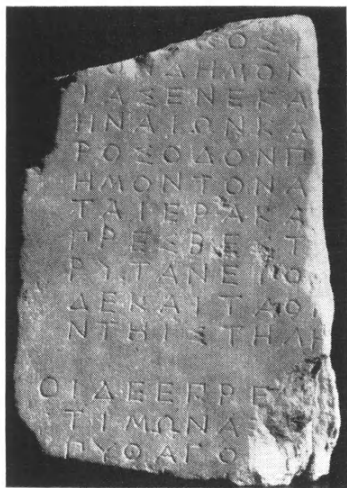 ΟΣΙ
ΟΝΔΗΜΟΝ
ΙΑΣΕΝΕΚΑ
ΗΝΑΙΩΝΚΑ
ΡΟΣΟΔΟΝΠ
ΗΜΟΝΤΟΝΑ
ΤΑΙΕΡΑΚΑ
ΠΡΕΣΒΕ Τ
ΡΥΤΑΝΕΙΟ
ΔΕΚΑΙΤΑΟΝ
ΝΤΗΙΣΤΗΛΗ
ΟΙΔΕΕΠΡΕ
ΤΙΜΩΝΑ
ΠΥΘΑΓΟ